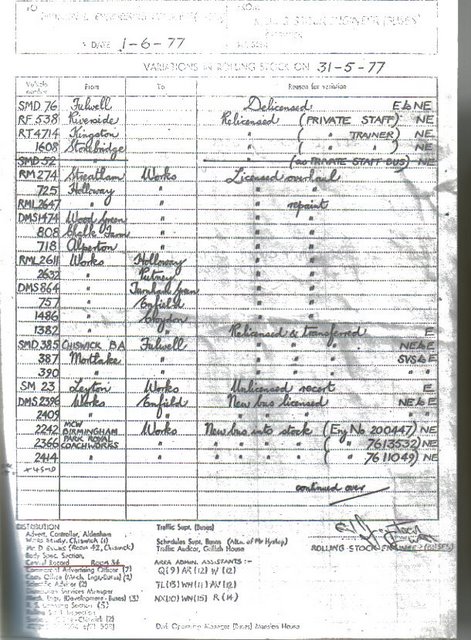 TO
FROM
ROLLING STOCK ENGINEER (BUSES)
DATE 1-6-77
VARIATIONS IN ROLLING STOCK ON 31-5-77
Vehicle number From To Reason for variation
SMD 76 Fulwell Delicensed E & NE
RF 538 Riverside Relicensed (PRIVATE STAFF) NE
RT 4714 Kingston " ( " TRAINER) NE
1608 Stonbridge " ( " " ) NE
SMD 52 " (as PRIVATE STAFF BUS) NE
RM 274 Streatham Works Licensed overhaul
725 Holloway " " "
RML 2647 " " " repaint
DMS 1474 Wood Green " " "
808 Chalk Farm " " "
718 Alperton " " "
RML 2611 Works Holloway " "
2632 " Putney " "
DMS 864 " Turnham Green " "
757 " Enfield " "
1486 " Croydon " "
1382 " " Relicensed & transferred E
SMD 385 CHISWICK BA Fulwell " " " NE & E
387 Mortlake " " " " SVS & E
390 " " " " "
SM 23 Leyton Works Unlicensed recert E
DMS 2396 Works Enfield New bus licensed NE & E
2409 " " " " "
2242 MCW BIRMINGHAM Works New bus into stock (Eng No 200447) NE
2366 PARK ROYAL COACHWORKS " " " " " ( " 7613532) NE
2414 " " " " " " ( " 7611049) NE
continued over
DISTRIBUTION
Advert. Controller, Aldenham
Works Study, Chiswick (1)
Mr D. Evans (ROOM 42, Chiswick)
Body Spec. Section,
Central Record ROOM 36
Commercial Advertising Officer (2)
Scientific Adviser (2)
Mech. Engs. (Development - Buses) (3)
Traffic Supt. (Buses)
Schedules Supt. Buses (Attn. of Mr Hyslop)
Traffic Auditor, Griffith House
AREA ADMIN. ASSISTANTS :-
Q(9) AR(12) W (12)
TL(13) WH(11) AV(12)
NX(10) WN(15) R(14)
ROLLING STOCK ENGINEER (BUSES)
Dist. Operating Manager (Buses) Mansion House